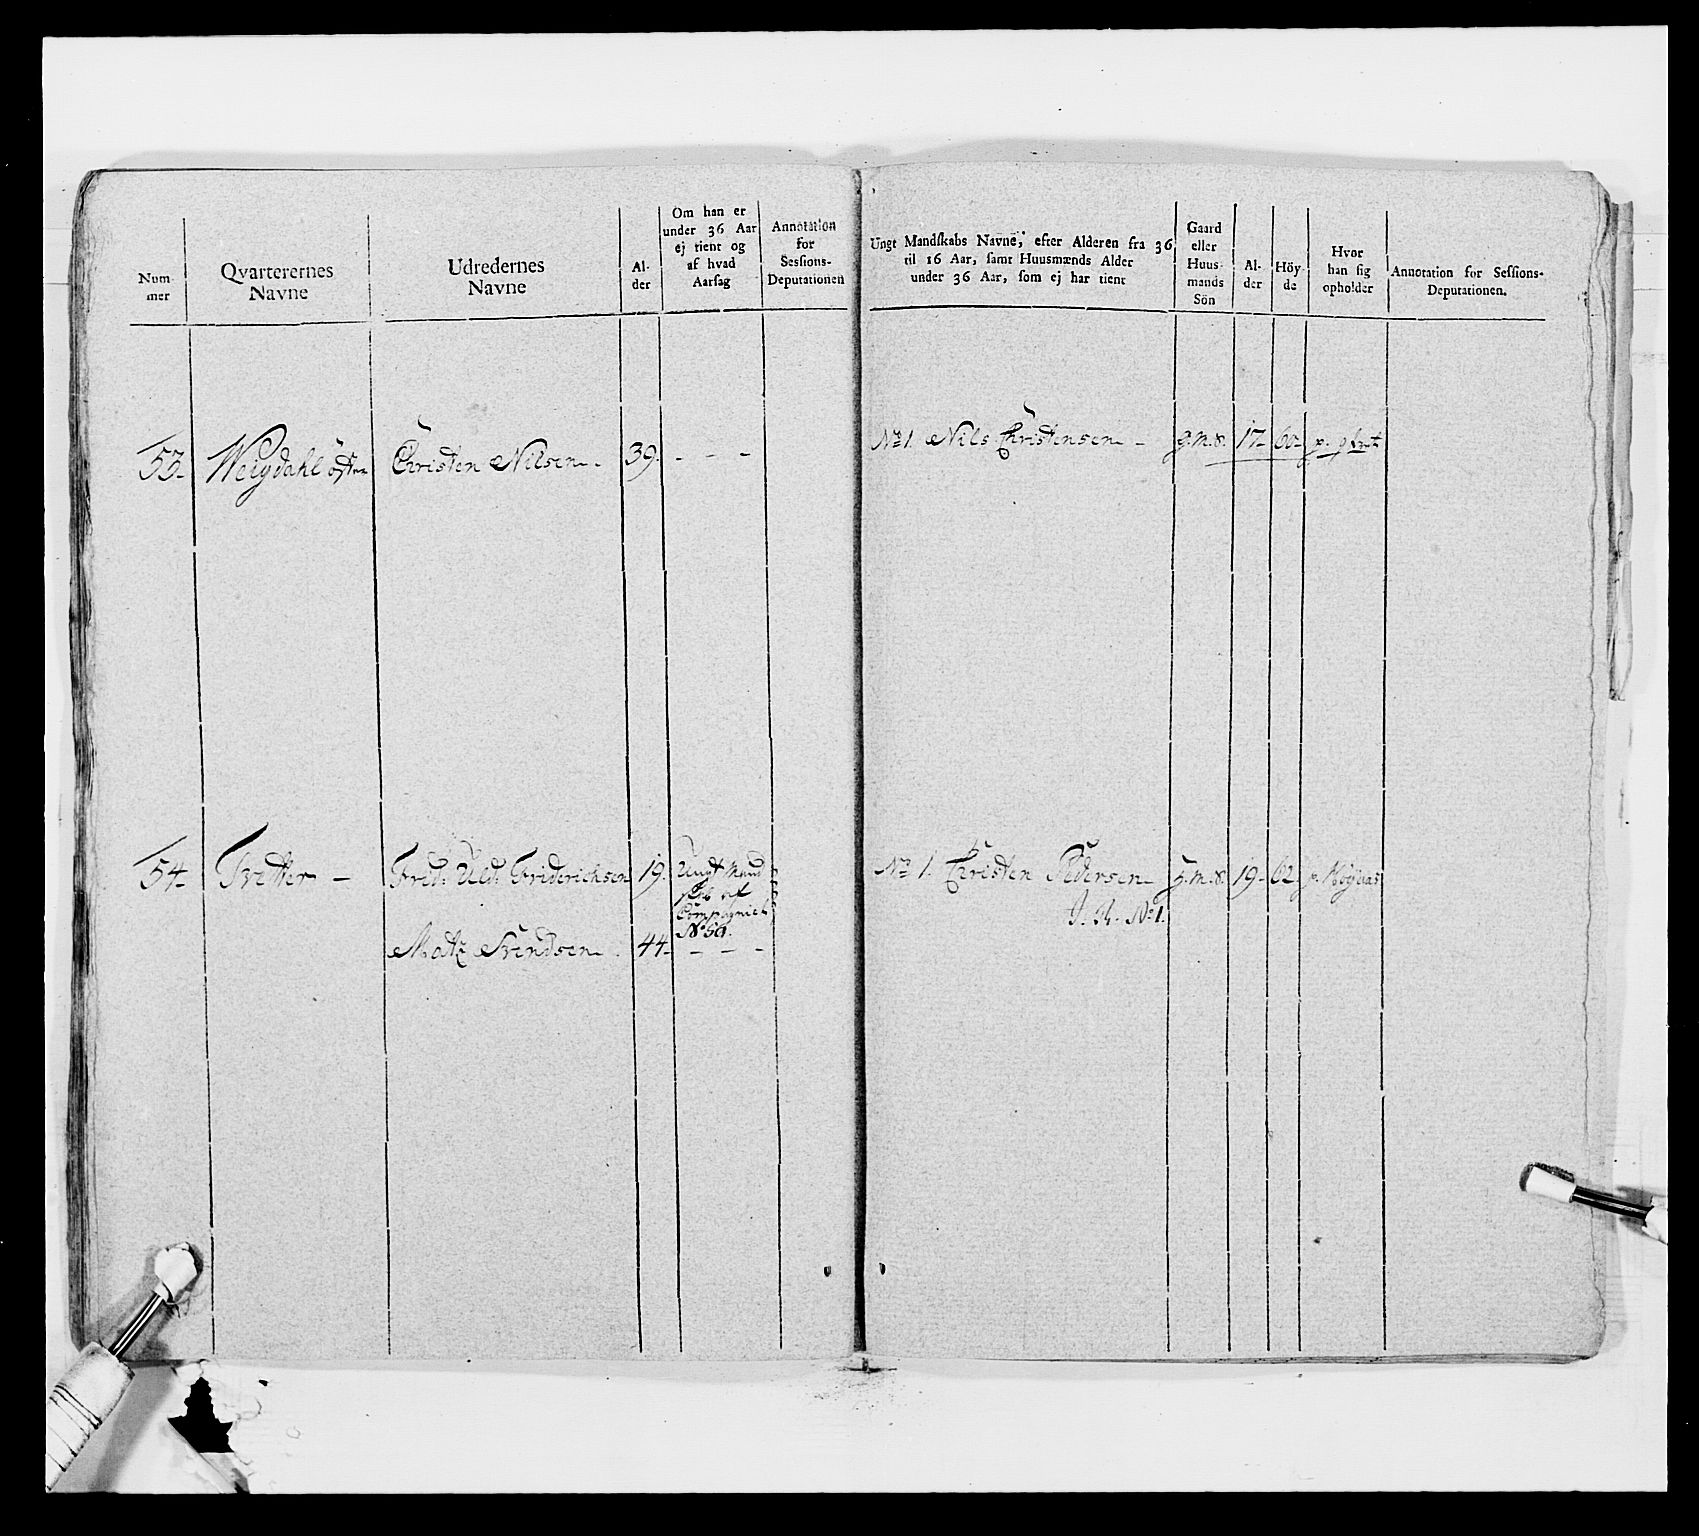 Num-
mer
Qvarterernes
Navne
Udredernes
Navne
Al-
der
Om han er
under 36 Aar
ej tient og
af hvad
Aarsag
Annotation
for
Sessions-
Deputationen
53 Weigdahl öster Christen Nilsen 39. - - -
54 Tvetter - Frid: Uld: Friderichsen 19. Ungt Mand
skab af
Compagniet
No 59.
Matz Svendsen 44 - - -
Ungt Mandskabs Navne, efter Alderen fra 36
til 16 Aar, samt Huusmænds Alder
under 36 Aar, som ej har tient
Gaard
eller
Huus-
mands
Sön
Al-
der
Höy-
de
Hvor
han sig
opholder
Annotation for Sessions-
Deputationen.
No 1. Nils Christensen - g.m.s. 17 60 p. qvart
No 1. Christen Pedersen g.m.s. 19 62
J. R. No 1.